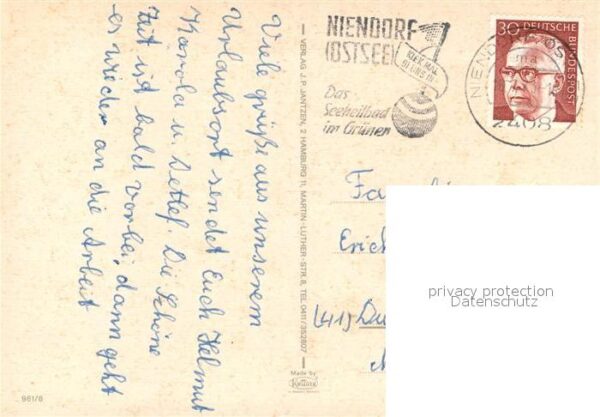 Viele Grüße aus unserem
Urlaubsort sendet Euch Helmut
Karola u. Detlef. Die Schöne
Zeit ist bald vorbei, dann geht
es wieder an die Arbeit
VERLAG J. P. JANTZEN, 2 HAMBURG 11, MARTIN-LUTHER-STR. 8, TEL 0411/352807
Made by
Kellner
961/8
NIENDORF
(OSTSEE)
Das
Seeheilbad
im Grünen
30 DEUTSCHE
BUNDESPOST
2408
Erich
(41) Du
privacy protection
Datenschutz